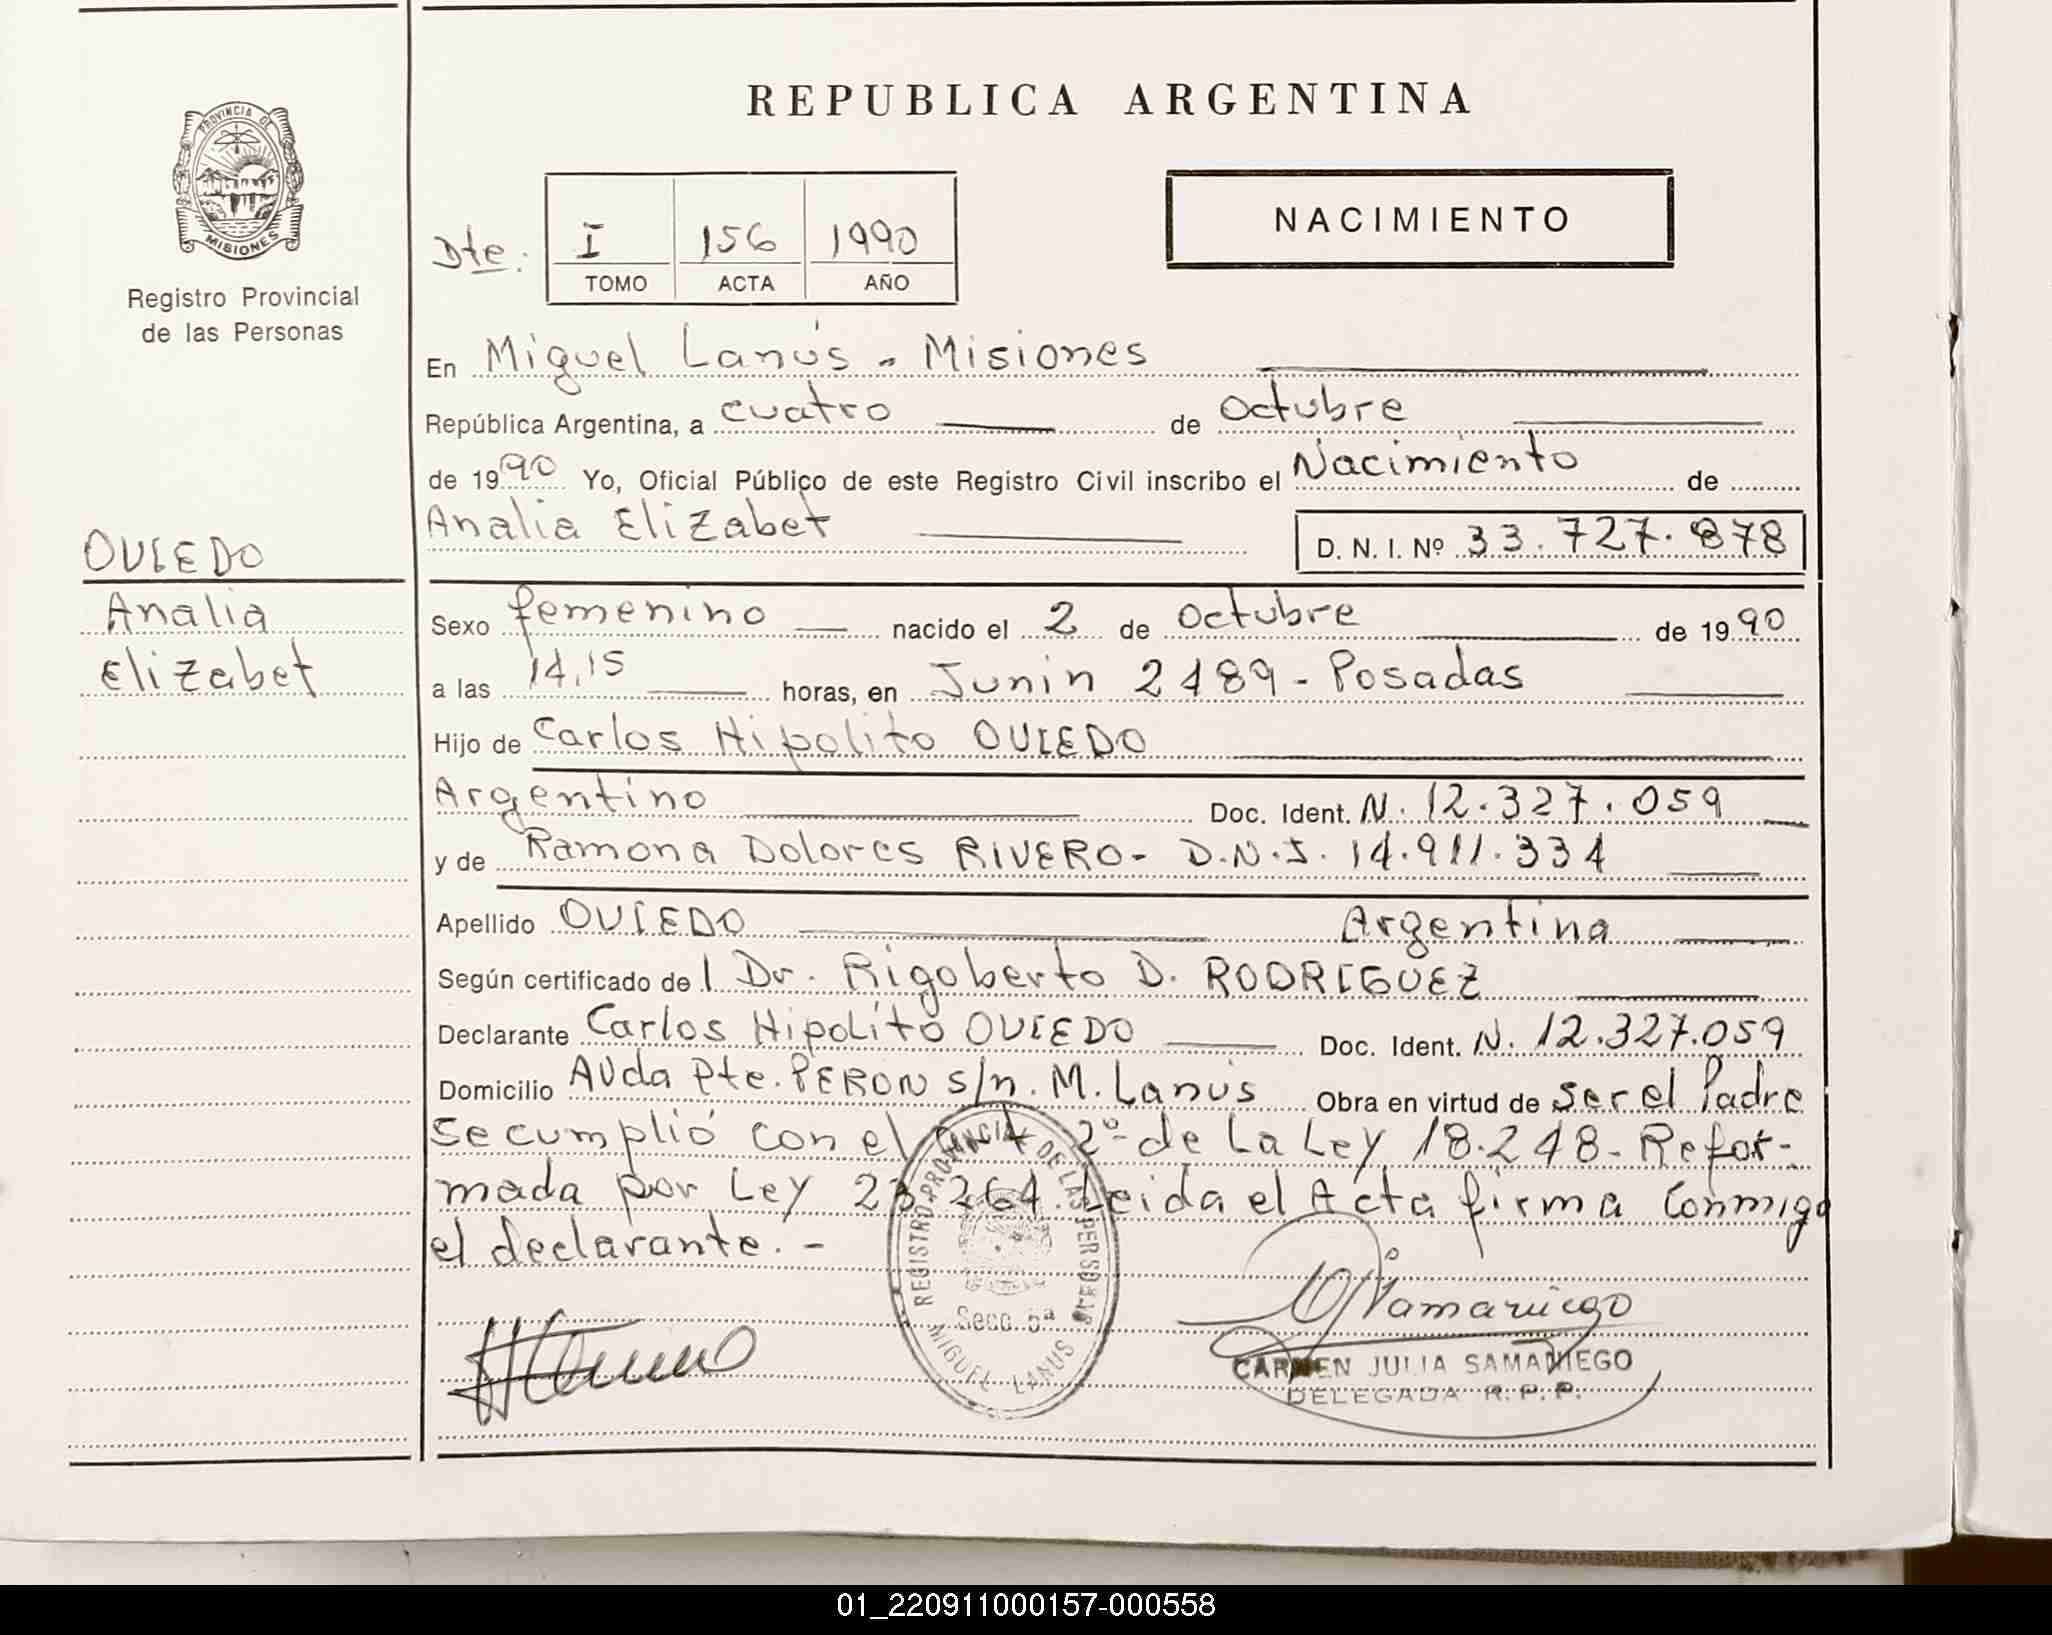 REPUBLICA ARGENTINA
PROVINCIA DE
MISIONES
Registro Provincial
de las Personas
NACIMIENTO
Dte: I 156 1990
TOMO ACTA AÑO
En Miguel Lanús - Misiones
República Argentina, a cuatro de Octubre
de 1990 Yo, Oficial Público de este Registro Civil inscribo el Nacimiento de
Analia Elizabet D. N. I. Nº 33.727.878
OVIEDO
Analia
Elizabet
Sexo femenino nacido el 2 de Octubre de 1990
a las 14,15 horas, en Junin 2489 - Posadas
Hijo de Carlos Hipolito OVIEDO
Argentino Doc. Ident. N. 12.327.059
y de Ramona Dolores RIVERO- D.N.I. 14.911.334
Apellido OVIEDO Argentina
Según certificado de l Dr. Rigoberto D. RODRIGUEZ
Declarante Carlos Hipolito OVIEDO Doc. Ident. N. 12.327.059
Domicilio AVda Pte. PERON s/n. M. Lanus Obra en virtud de ser el Padre
se cumplió con el Art 2º de La Ley 18.248- Refor-
mada por Ley 23.264. Leida el Acta firma conmigo
el declarante. -
REGISTRO PROVINCIAL DE LAS PERSONAS
Secc. 5ª
MIGUEL LANUS
CARMEN JULIA SAMANIEGO
DELEGADA R. P. P.
01_220911000157-000558